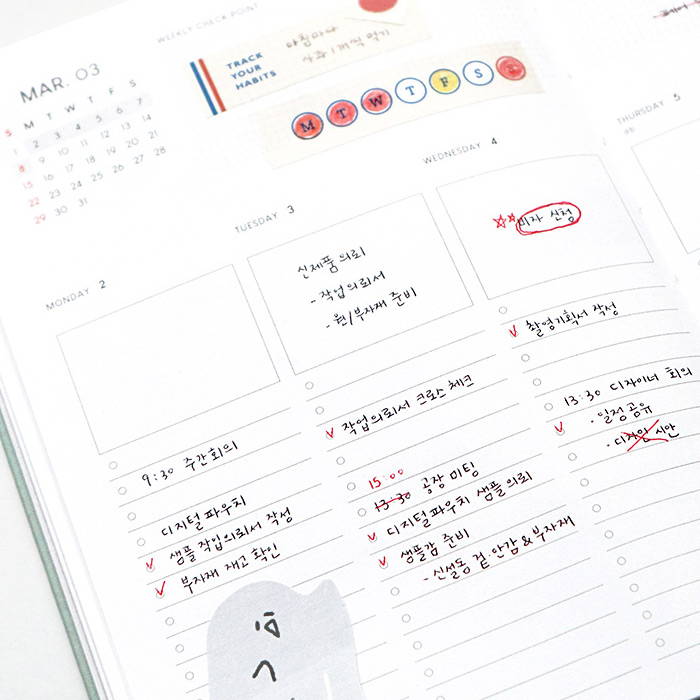 WEEKLY CHECK POINT
MAR. 03
S M T W T F S
1 2 3 4 5 6 7
8 9 10 11 12 13 14
15 16 17 18 19 20 21
22 23 24 25 26 27 28
29 30 31
TRACK
YOUR
HABITS
아침마다
사과 1개씩 먹기
M T W T F S S
MONDAY 2
9:30 주간회의
디지털파우치
샘플 작업의뢰서 작성
부자재 재고 확인
TUESDAY 3
신제품 의뢰
- 작업의뢰서
- 원/부자재 준비
작업의뢰서 크로스 체크
15:00
13:30 공장 미팅
디지털파우치 샘플의뢰
샘플감 준비
- 신설동 겉·안감&부자재
WEDNESDAY 4
비자 신청
촬영기획서 작성
13:30 디자이너 회의
· 일정공유
· 디자인 시안
THURSDAY 5